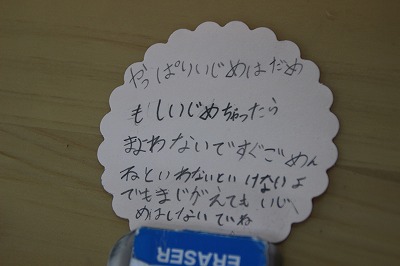 やっぱりいじめはだめ
もしいじめちゃったら
まよわないですぐごめん
ねといわないといけないよ
でもまじがえてもいじ
めはしないでね
ERASER